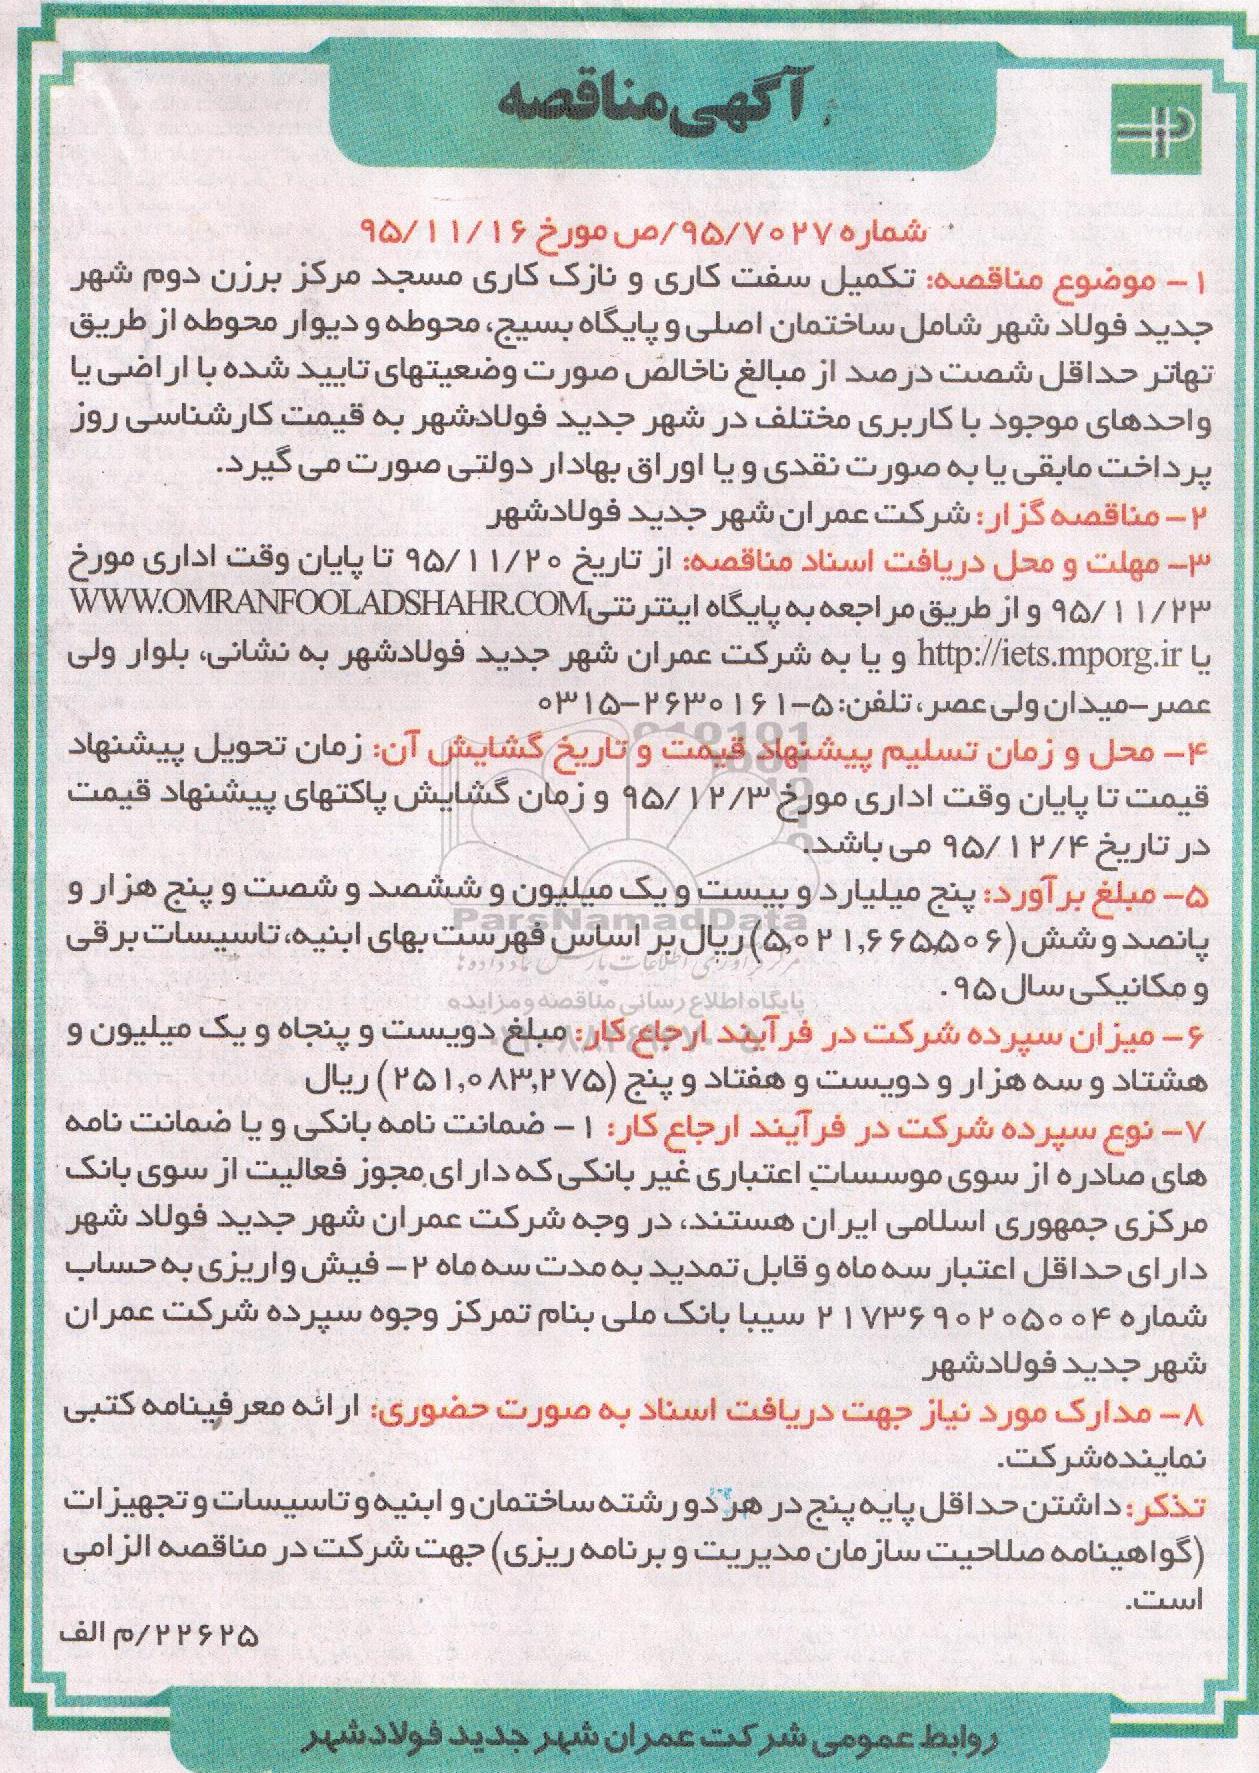 آگهی مناقصه
شماره ۹۵/۷۰۲۷/ص مورخ ۹۵/۱۱/۱۶
۱- موضوع مناقصه: تکمیل سفت کاری و نازک کاری مسجد مرکز برزن دوم شهر
جدید فولاد شهر شامل ساختمان اصلی و پایگاه بسیج، محوطه و دیوار محوطه از طریق
تهاتر حداقل شصت درصد از مبالغ ناخالص صورت وضعیتهای تایید شده با اراضی یا
واحدهای موجود با کاربری مختلف در شهر جدید فولادشهر به قیمت کارشناسی روز
پرداخت مابقی یا به صورت نقدی و یا اوراق بهادار دولتی صورت می گیرد.
۲- مناقصه گزار: شرکت عمران شهر جدید فولادشهر
۳- مهلت و محل دریافت اسناد مناقصه: از تاریخ ۹۵/۱۱/۲۰ تا پایان وقت اداری مورخ
۹۵/۱۱/۲۳ و از طریق مراجعه به پایگاه اینترنتی WWW.OMRANFOOLADSHAHR.COM
یا http://iets.mporg.ir و یا به شرکت عمران شهر جدید فولادشهر به نشانی، بلوار ولی
عصر-میدان ولی عصر، تلفن: ۵-۰۳۱۵-۲۶۳۰۱۶۱
۴- محل و زمان تسلیم پیشنهاد قیمت و تاریخ گشایش آن: زمان تحویل پیشنهاد
قیمت تا پایان وقت اداری مورخ ۹۵/۱۲/۳ و زمان گشایش پاکتهای پیشنهاد قیمت
در تاریخ ۹۵/۱۲/۴ می باشد.
۵- مبلغ برآورد: پنج میلیارد و بیست و یک میلیون و ششصد و شصت و پنج هزار و
پانصد و شش (۵,۰۲۱,۶۶۵,۵۰۶) ریال بر اساس فهرست بهای ابنیه، تاسیسات برقی
و مکانیکی سال ۹۵.
۶- میزان سپرده شرکت در فرآیند ارجاع کار: مبلغ دویست و پنجاه و یک میلیون و
هشتاد و سه هزار و دویست و هفتاد و پنج (۲۵۱,۰۸۳,۲۷۵) ریال
۷- نوع سپرده شرکت در فرآیند ارجاع کار: ۱- ضمانت نامه بانکی و یا ضمانت نامه
های صادره از سوی موسسات اعتباری غیر بانکی که دارای مجوز فعالیت از سوی بانک
مرکزی جمهوری اسلامی ایران هستند، در وجه شرکت عمران شهر جدید فولاد شهر
دارای حداقل اعتبار سه ماه و قابل تمدید به مدت سه ماه ۲- فیش واریزی به حساب
شماره ۲۱۷۳۶۹۰۲۰۵۰۰۴ سیبا بانک ملی بنام تمرکز وجوه سپرده شرکت عمران
شهر جدید فولادشهر
۸- مدارک مورد نیاز جهت دریافت اسناد به صورت حضوری: ارائه معرفینامه کتبی
نماینده شرکت.
تذکر: داشتن حداقل پایه پنج در هر دو رشته ساختمان و ابنیه و تاسیسات و تجهیزات
(گواهینامه صلاحیت سازمان مدیریت و برنامه ریزی) جهت شرکت در مناقصه الزامی
است.
۲۲۶۲۵/م الف
روابط عمومی شرکت عمران شهر جدید فولادشهر
ParsNamadData
مرکز فرآوری اطلاعات پارس نماد داده ها
پایگاه اطلاع رسانی مناقصه و مزایده